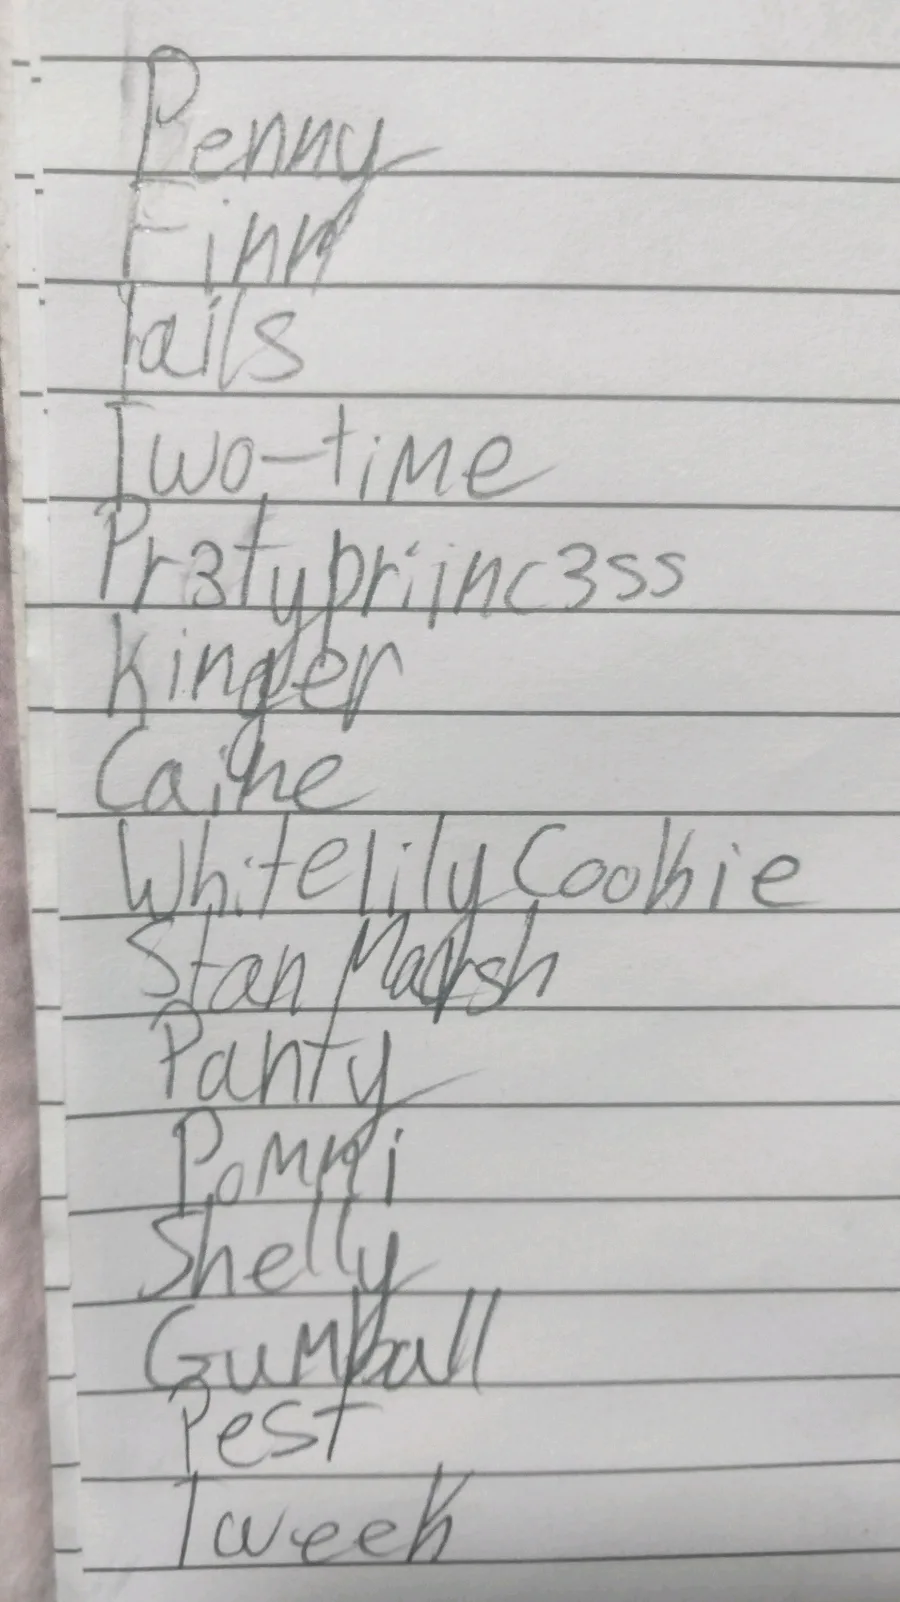 Penny
Finn
Tails
Two-time
Pr3typriinc3ss
Kinger
Caine
Whitelily Cookie
Stan Marsh
Panty
Pomni
Shelly
Gumball
Pest
Tweek